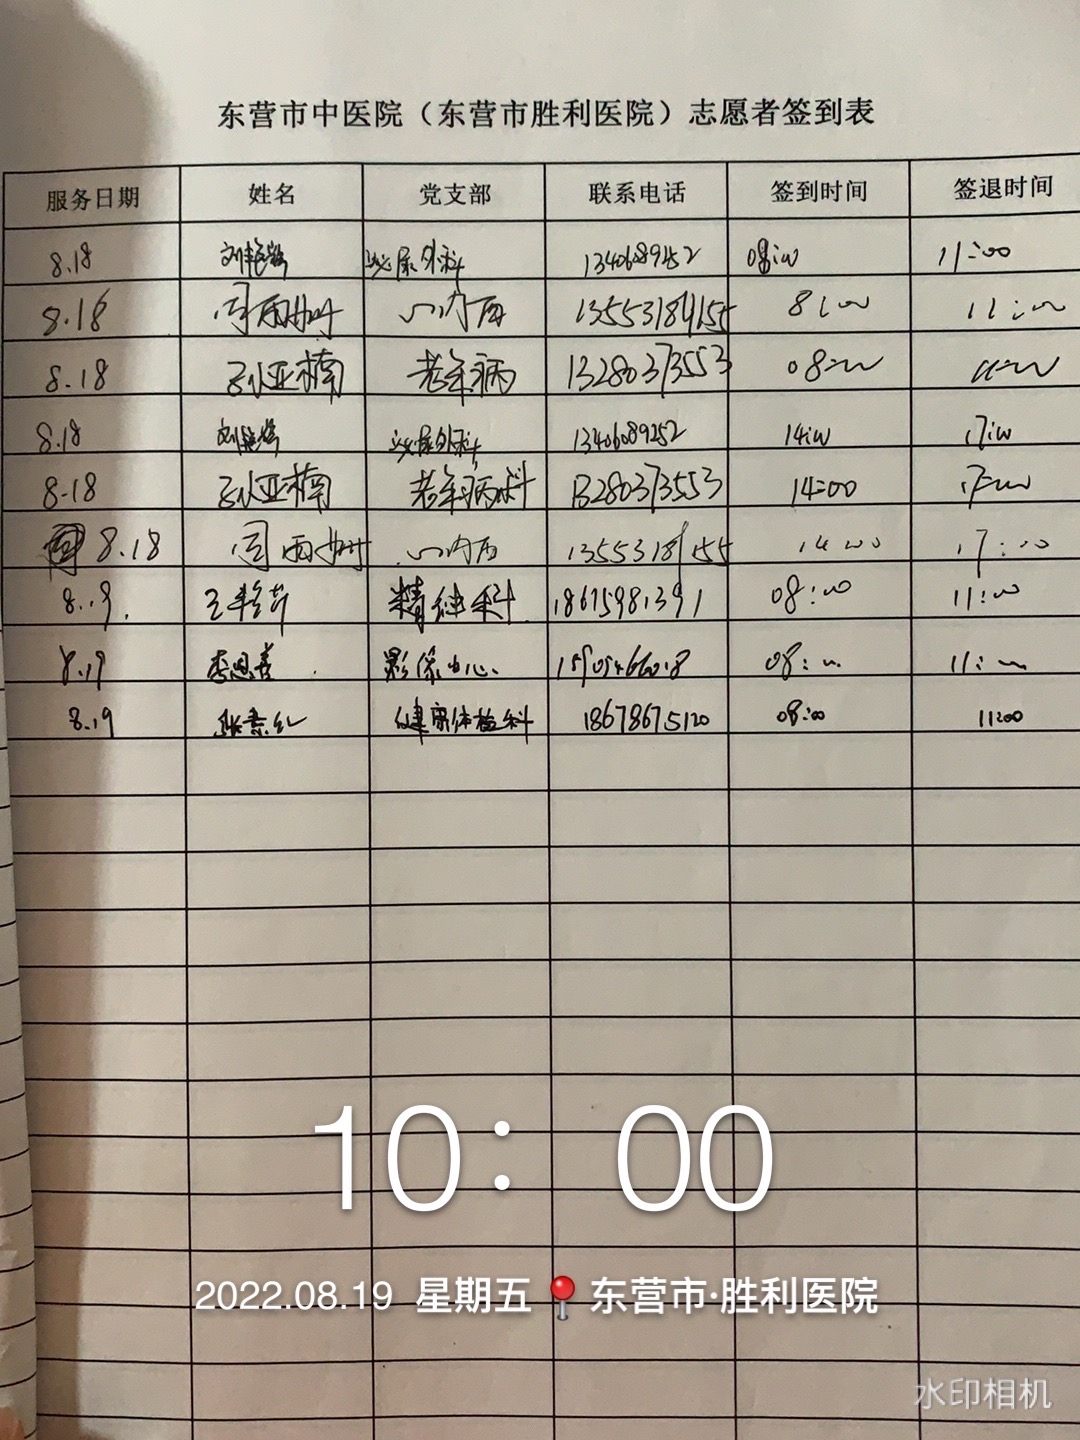 东营市中医院（东营市胜利医院）志愿者签到表
服务日期 姓名 党支部 联系电话 签到时间 签退时间
8.18 泌尿外科 08:00 11:00
8.18 13553189155 8:00 11:00
8.18 孙亚楠 老年病 13280373553 08:00 11:00
8.18 泌尿外科 13406089252 14:00 17:00
8-18 孙亚楠 老年病科 13280373553 14:00 17:00
8.18 13553189155 14:00 17:00
8.19. 18615981391 08:00 11:00
8.19 李恩喜 影像中心 08:00 11:00
8.19 健康体检科 18678675120 08:00 11:00
10:00
2022.08.19 星期五 东营市·胜利医院
水印相机